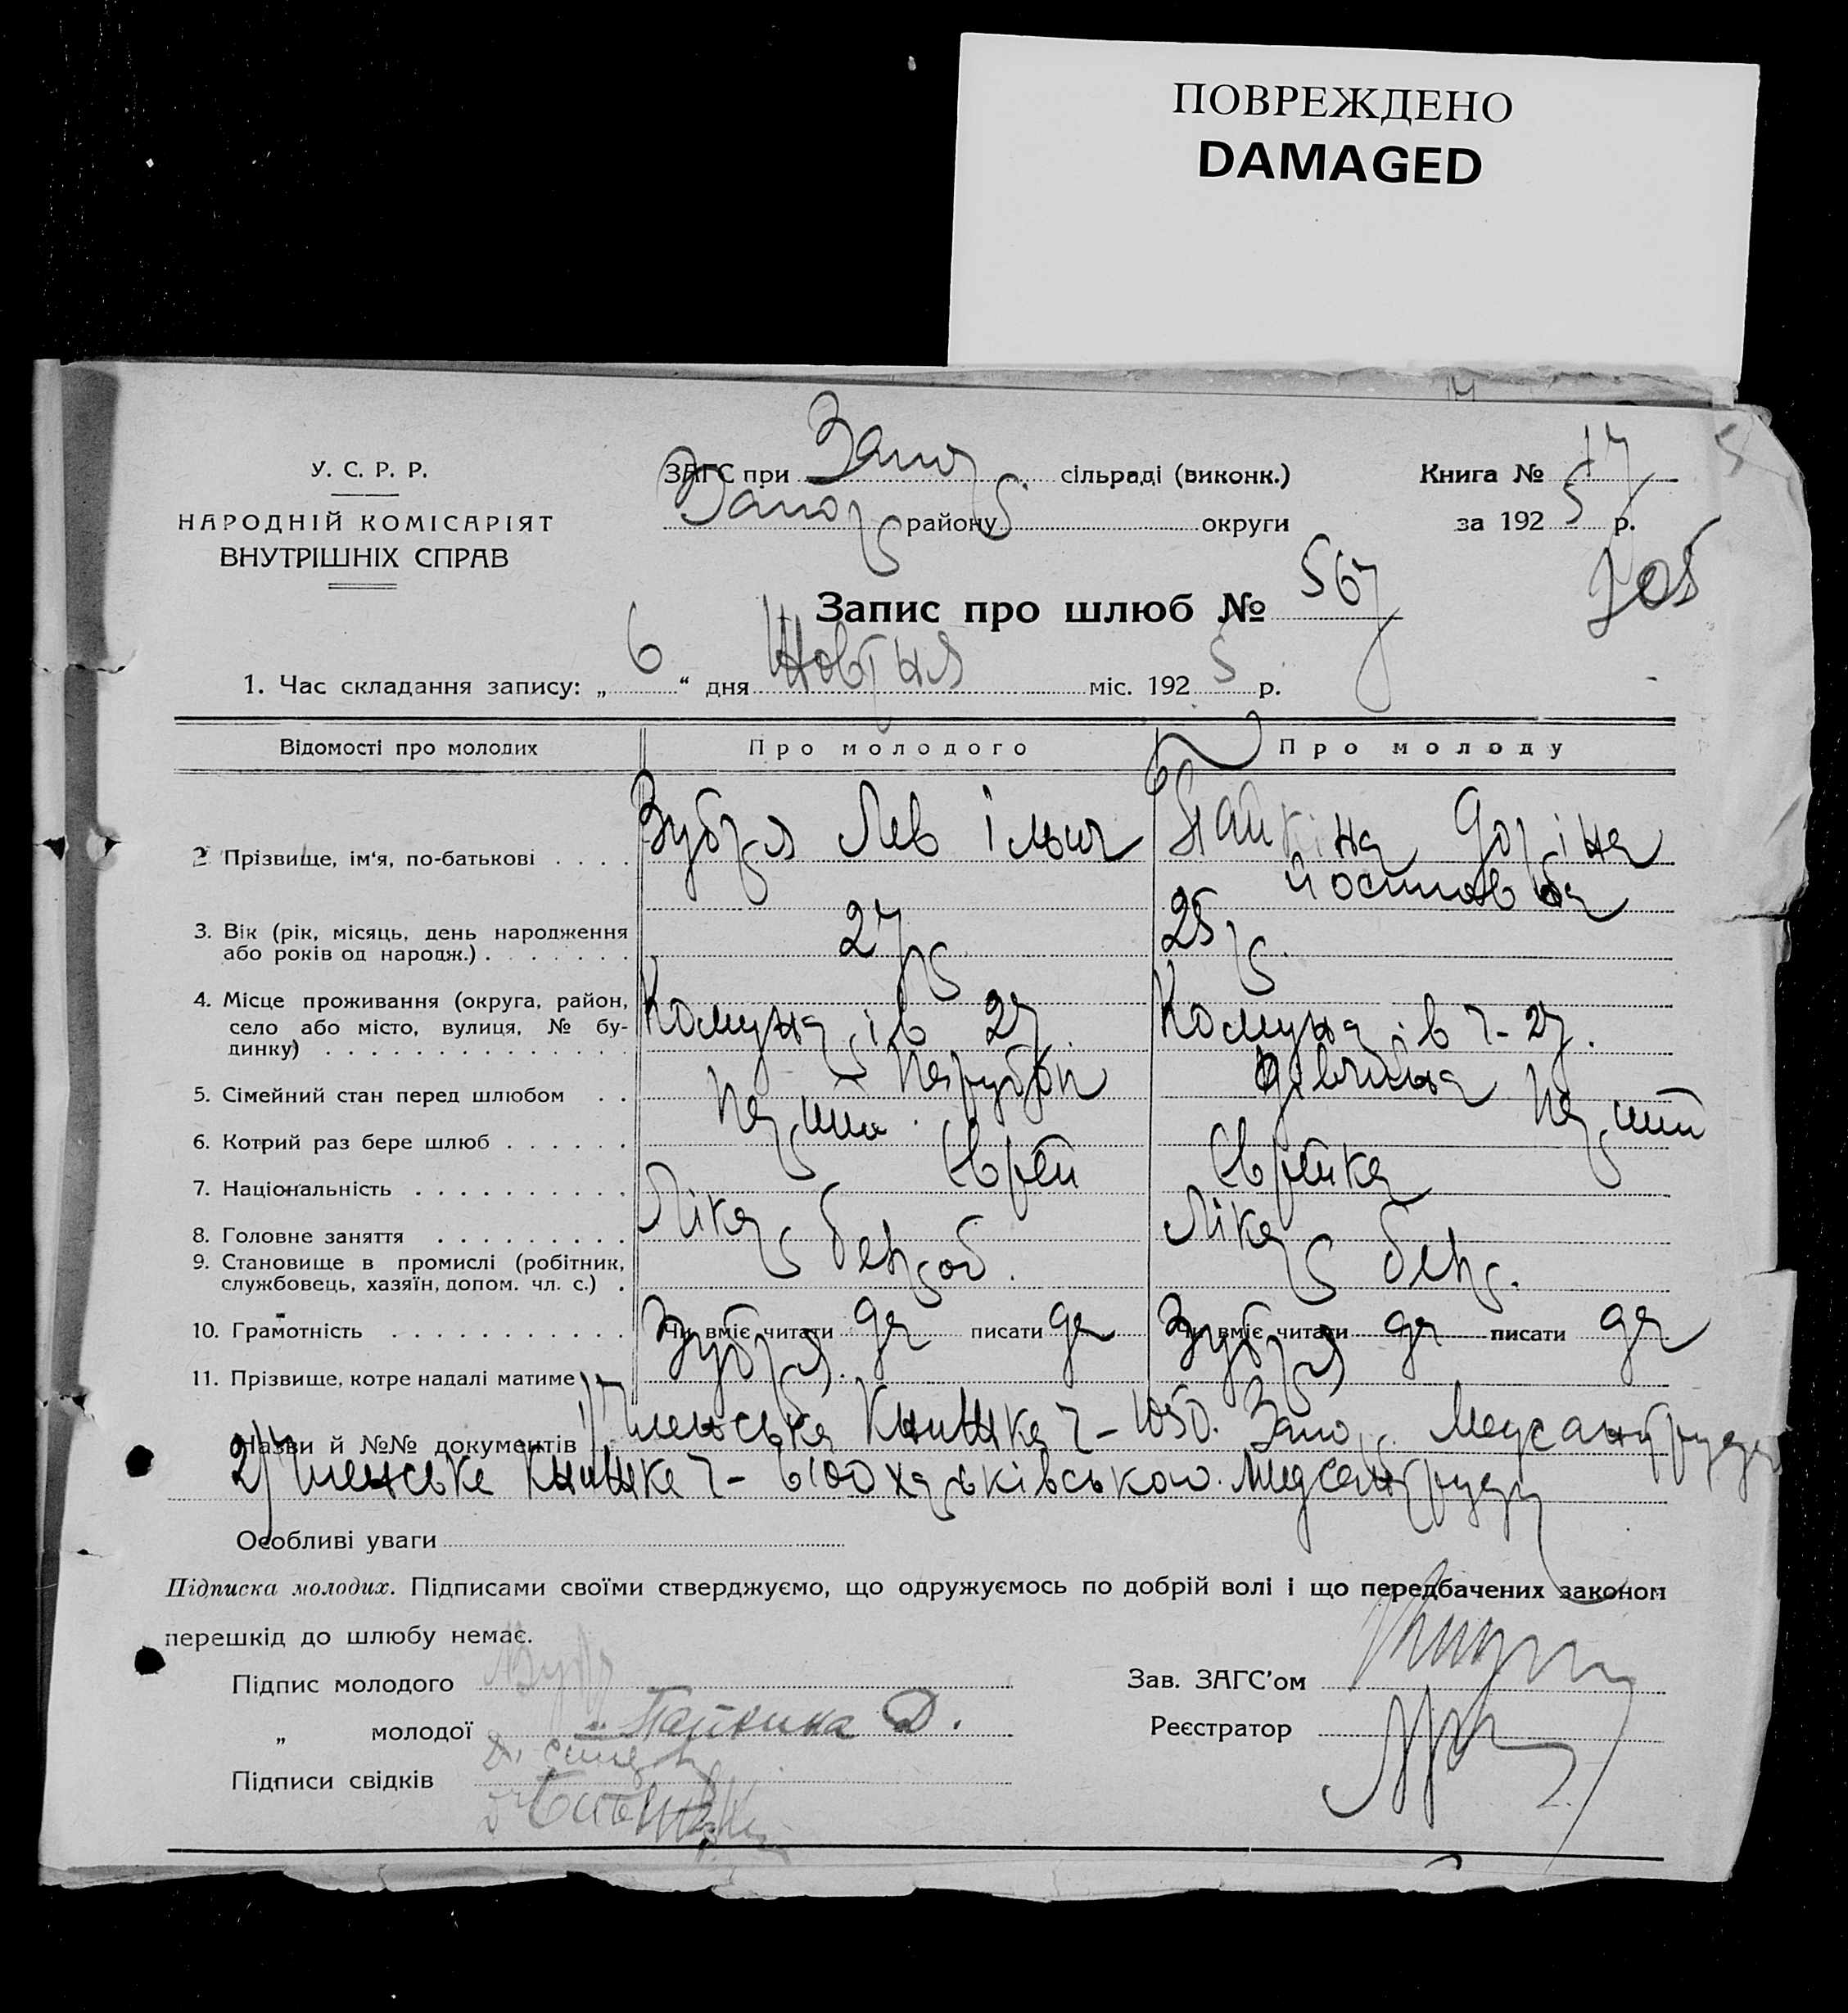 ПОВРЕЖДЕНО
DAMAGED
У. С. Р. Р.
НАРОДНІЙ КОМІСАРІЯТ
ВНУТРІШНІХ СПРАВ
ЗАГС при Запор сільраді (виконк.)
Запор району округи
Книга № 17
за 1925 р.
Запис про шлюб № 567
205
1. Час складання запису: „6“ дня Жовтня міс. 1925 р.
Відомості про молодих Про молодого Про молоду
2 Прізвище, ім'я, по-батькові . . . . Зубря Лев Ільич Пайкіна
3. Вік (рік, місяць, день народження або років од народж.) . . . . . . . 27 р 25 р.
4. Місце проживання (округа, район, село або місто, вулиця, № будинку) . . . . . . . . . . . . . . Комунарів 27. Комунарів ч-27.
5. Сімейний стан перед шлюбом . . Парубок дівчина
6. Котрий раз бере шлюб . . . . . . Перший Перший
7. Національність . . . . . . . . . . Єврей Єврейка
8. Головне заняття . . . . . . . . . Лікар Лікар
9. Становище в промислі (робітник, службовець, хазяїн, допом. чл. с.) . безроб. безр.
10. Грамотність . . . . . . . . . . . Чи вміє читати да писати да Чи вміє читати да писати да
11. Прізвище, котре надалі матиме Зубря. Зубря
Назви й №№ документів 1) Членська Книжка ч-1050. Запор. Медсантруда
2) Членська Книжка ч-6100 харьківського. Медсантруду
Особливі уваги
Підписка молодих. Підписами своїми стверджуємо, що одружуємось по добрій волі і що передбачених законом
перешкід до шлюбу немає.
Підпис молодого
„ молодої Пайкина Д.
Підписи свідків
Зав. ЗАГС'ом
Реєстратор